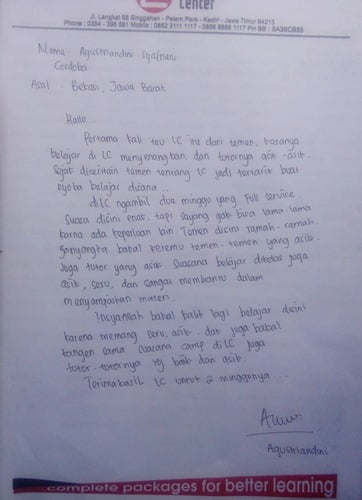 Center
Jl. Langkat 88 Singgahan - Pelem Pare - Kediri - Jawa Timur 64213
Phone : 0354 - 396 581 Mobile : 0852 3111 1117 - 0856 8686 1117 Pin BB : 5A38CB85
Nama : Agustriandini
Cordoba
Asal : Bekasi, Jawa Barat
Hallo
Pertama kali tau LC itu dari temen, katanya
belajar di LC menyenangkan, dan tutornya asik-asik.
Sejak diceritain temen tentang LC jadi tertarik buat
nyoba belajar disana..
diLC ngambil dua minggu yang Full service.
Suasa disini enak, tapi sayang gak bisa lama-lama
karna ada keperluan lain Temen disini ramah-ramah.
ganyangka bakal ketemu temen-temen yang asik.
Juga tutor yang asik. Suasana belajar dikelas juga
asik, seru, dan sangat membantu dalam
menyampaikan materi
Insyaallah bakal balik lagi belajar disini
karena memang seru, asik. dan juga bakal
kangen sama suasana camp di LC juga
tutor-tutornya yg baik dan asik.
Terimakasih LC untuk 2 minggunya...
Agustriandini
complete packages for better learning